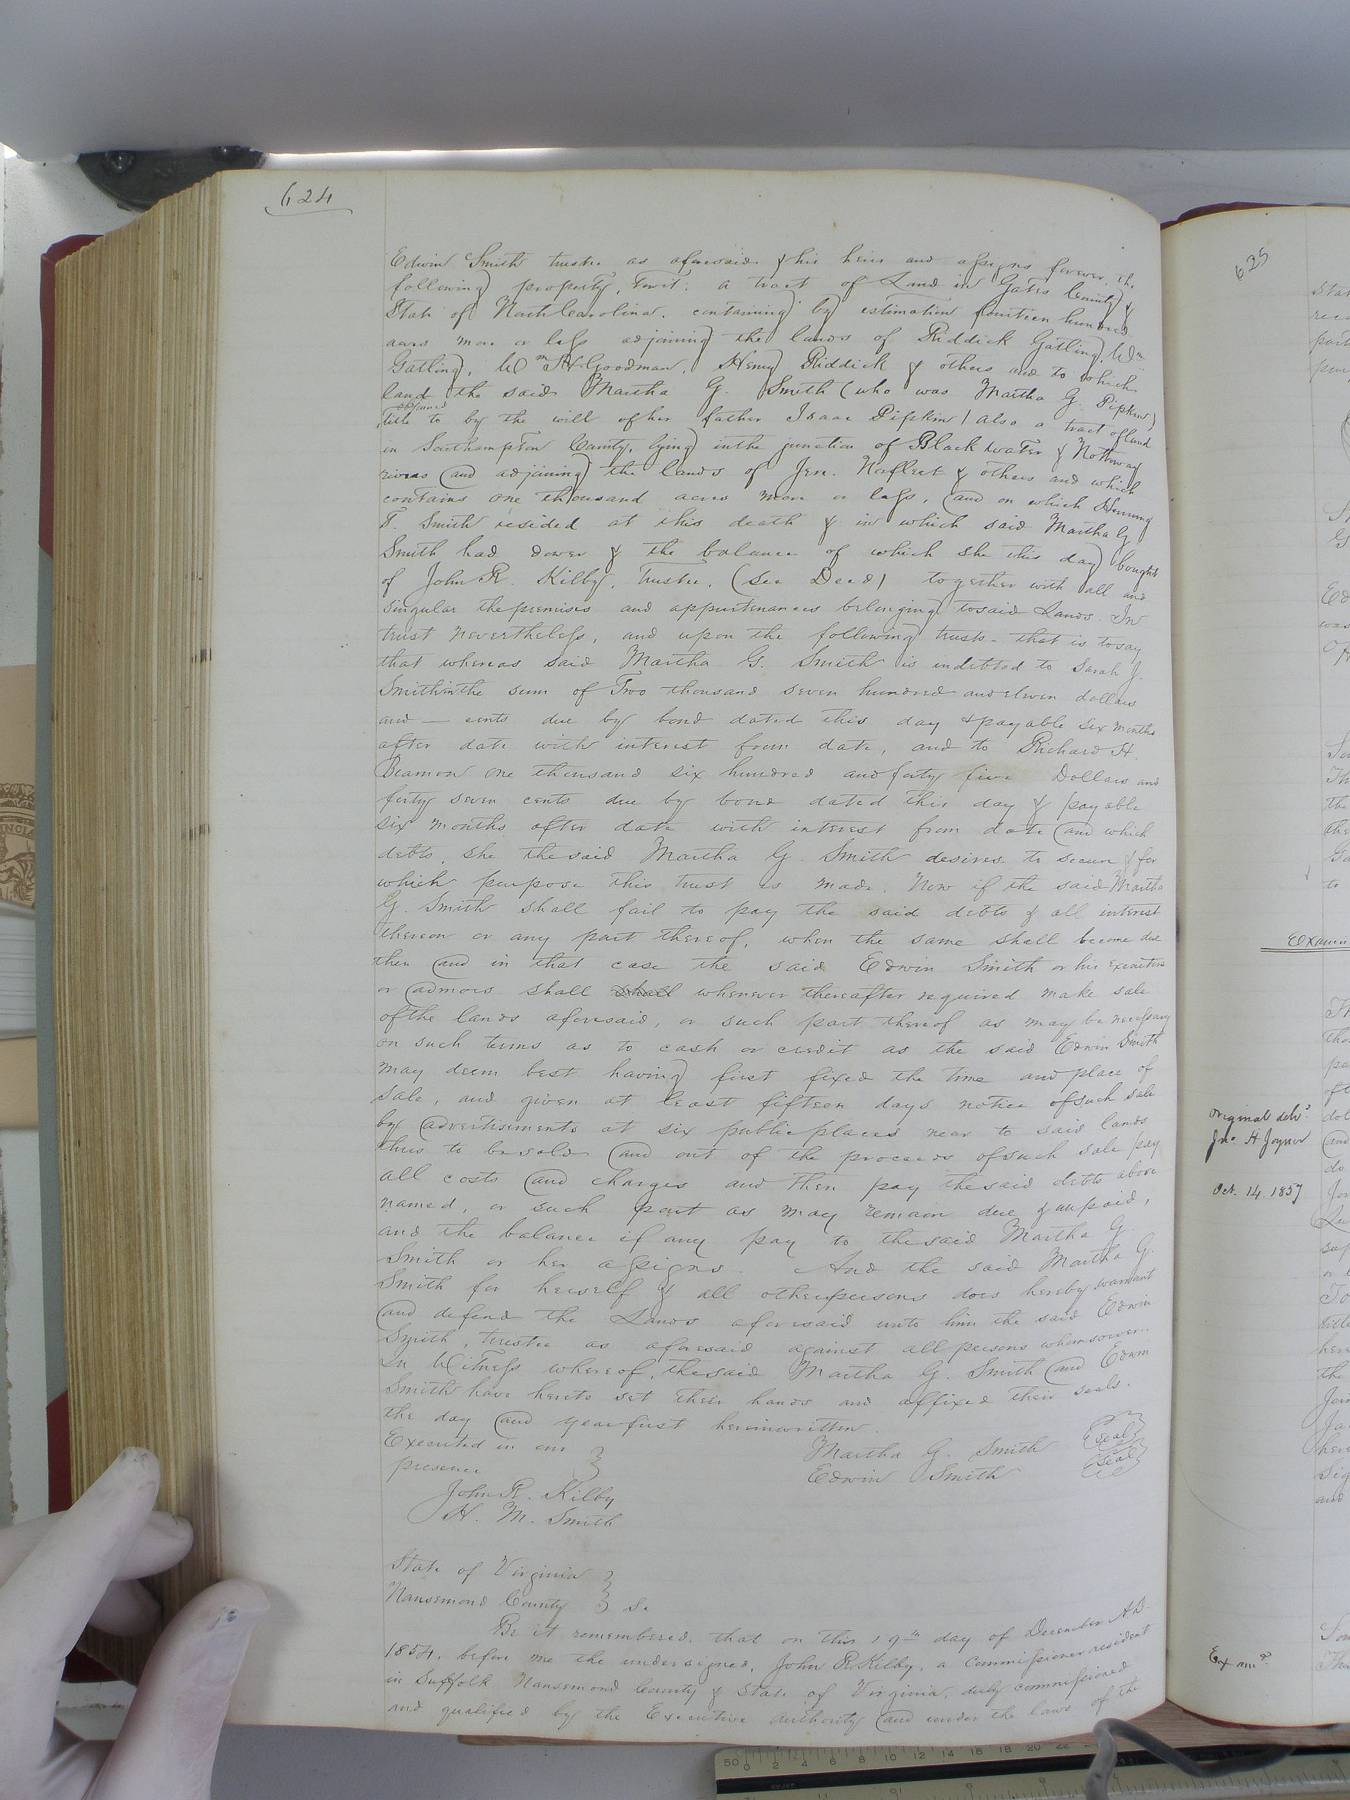 624
Edwin Smith trustee as aforesaid & his heirs and assigns forever, the
following property, towit: a tract of Land in Gates County &
State of North Carolina, containing by estimation fourteen hundred
acres more or less adjoining the lands of Riddick Gatling, Wm
Gatling, Wm H. Goodman, Henry Riddick & others and to which
land the said Martha G. Smith (who was Martha G. Pipkin)
obtained
title to by the will of her father Isaac Pipkin / also a tract of land
in Southampton County, lying in the junction of Black water & Nottoway
rivers and adjoining the lands of Jen. Norfleet & others and which
contains one thousand acres more or less, and on which Henning
T. Smith resided at this death & in which said Martha G
Smith had dower & the balance of which she this day bought
of John R. Kilby, trustee, (see Deed) together with all and
singular the premises and appurtenances belonging to said Lands. In
trust nevertheless, and upon the following trusts - that is to say
that whereas said Martha G. Smith is indebted to Sarah J.
Smith in the sum of Two thousand seven hundred and eleven dollars
and — cents due by bond dated this day & payable six months
after date with interest from date, and to Richard H.
Beamon one thousand six hundred and forty five Dollars and
forty seven cents due by bond dated this day & payable
six months after date with interest from date and which
debts, she the said Martha G. Smith desires to secure & for
which purpose this trust is made. Now if the said Martha
G. Smith shall fail to pay the said debts & all interest
thereon or any part thereof, when the same shall become due
then and in that case the said Edwin Smith or his executors
or admors shall shall whenever thereafter required make sale
of the lands aforesaid, or such part thereof as may be necessary
on such terms as to cash or credit as the said Edwin Smith
may deem best having first fixed the time and place of
sale, and given at least fifteen days notice of such sale
by advertisements at six public places near to said lands
thus to be sold and out of the proceeds of such sale pay
all costs and charges and then pay the said debts above
named, or such part as may remain due & unpaid,
and the balance if any pay to the said Martha G
Smith or her assigns. And the said Martha G.
Smith for herself & all other persons does hereby warrant
and defend the Lands aforesaid unto him the said Edwin
Smith, trustee as aforesaid against all persons whomsoever.
In Witness whereof, the said Martha G. Smith and Edwin
Smith have hereto set their hands and affixed their seals.
the day and year first hereinwritten.
Executed in our
presence
Martha G. Smith Seal
Edwin Smith Seal
John R. Kilby
H. M. Smith
State of Virginia
Nansemond County Sc
Be it remembered, that on this 19th day of December A.D.
1854, before me the undersigned, John R. Kilby, a commissioner resident
in Suffolk Nansemond County & State of Virginia, duly commissioned
and qualified by the Executive authority and under the laws of the
625
Original deld
Jno H Joyner
Oct. 14. 1857
Examd